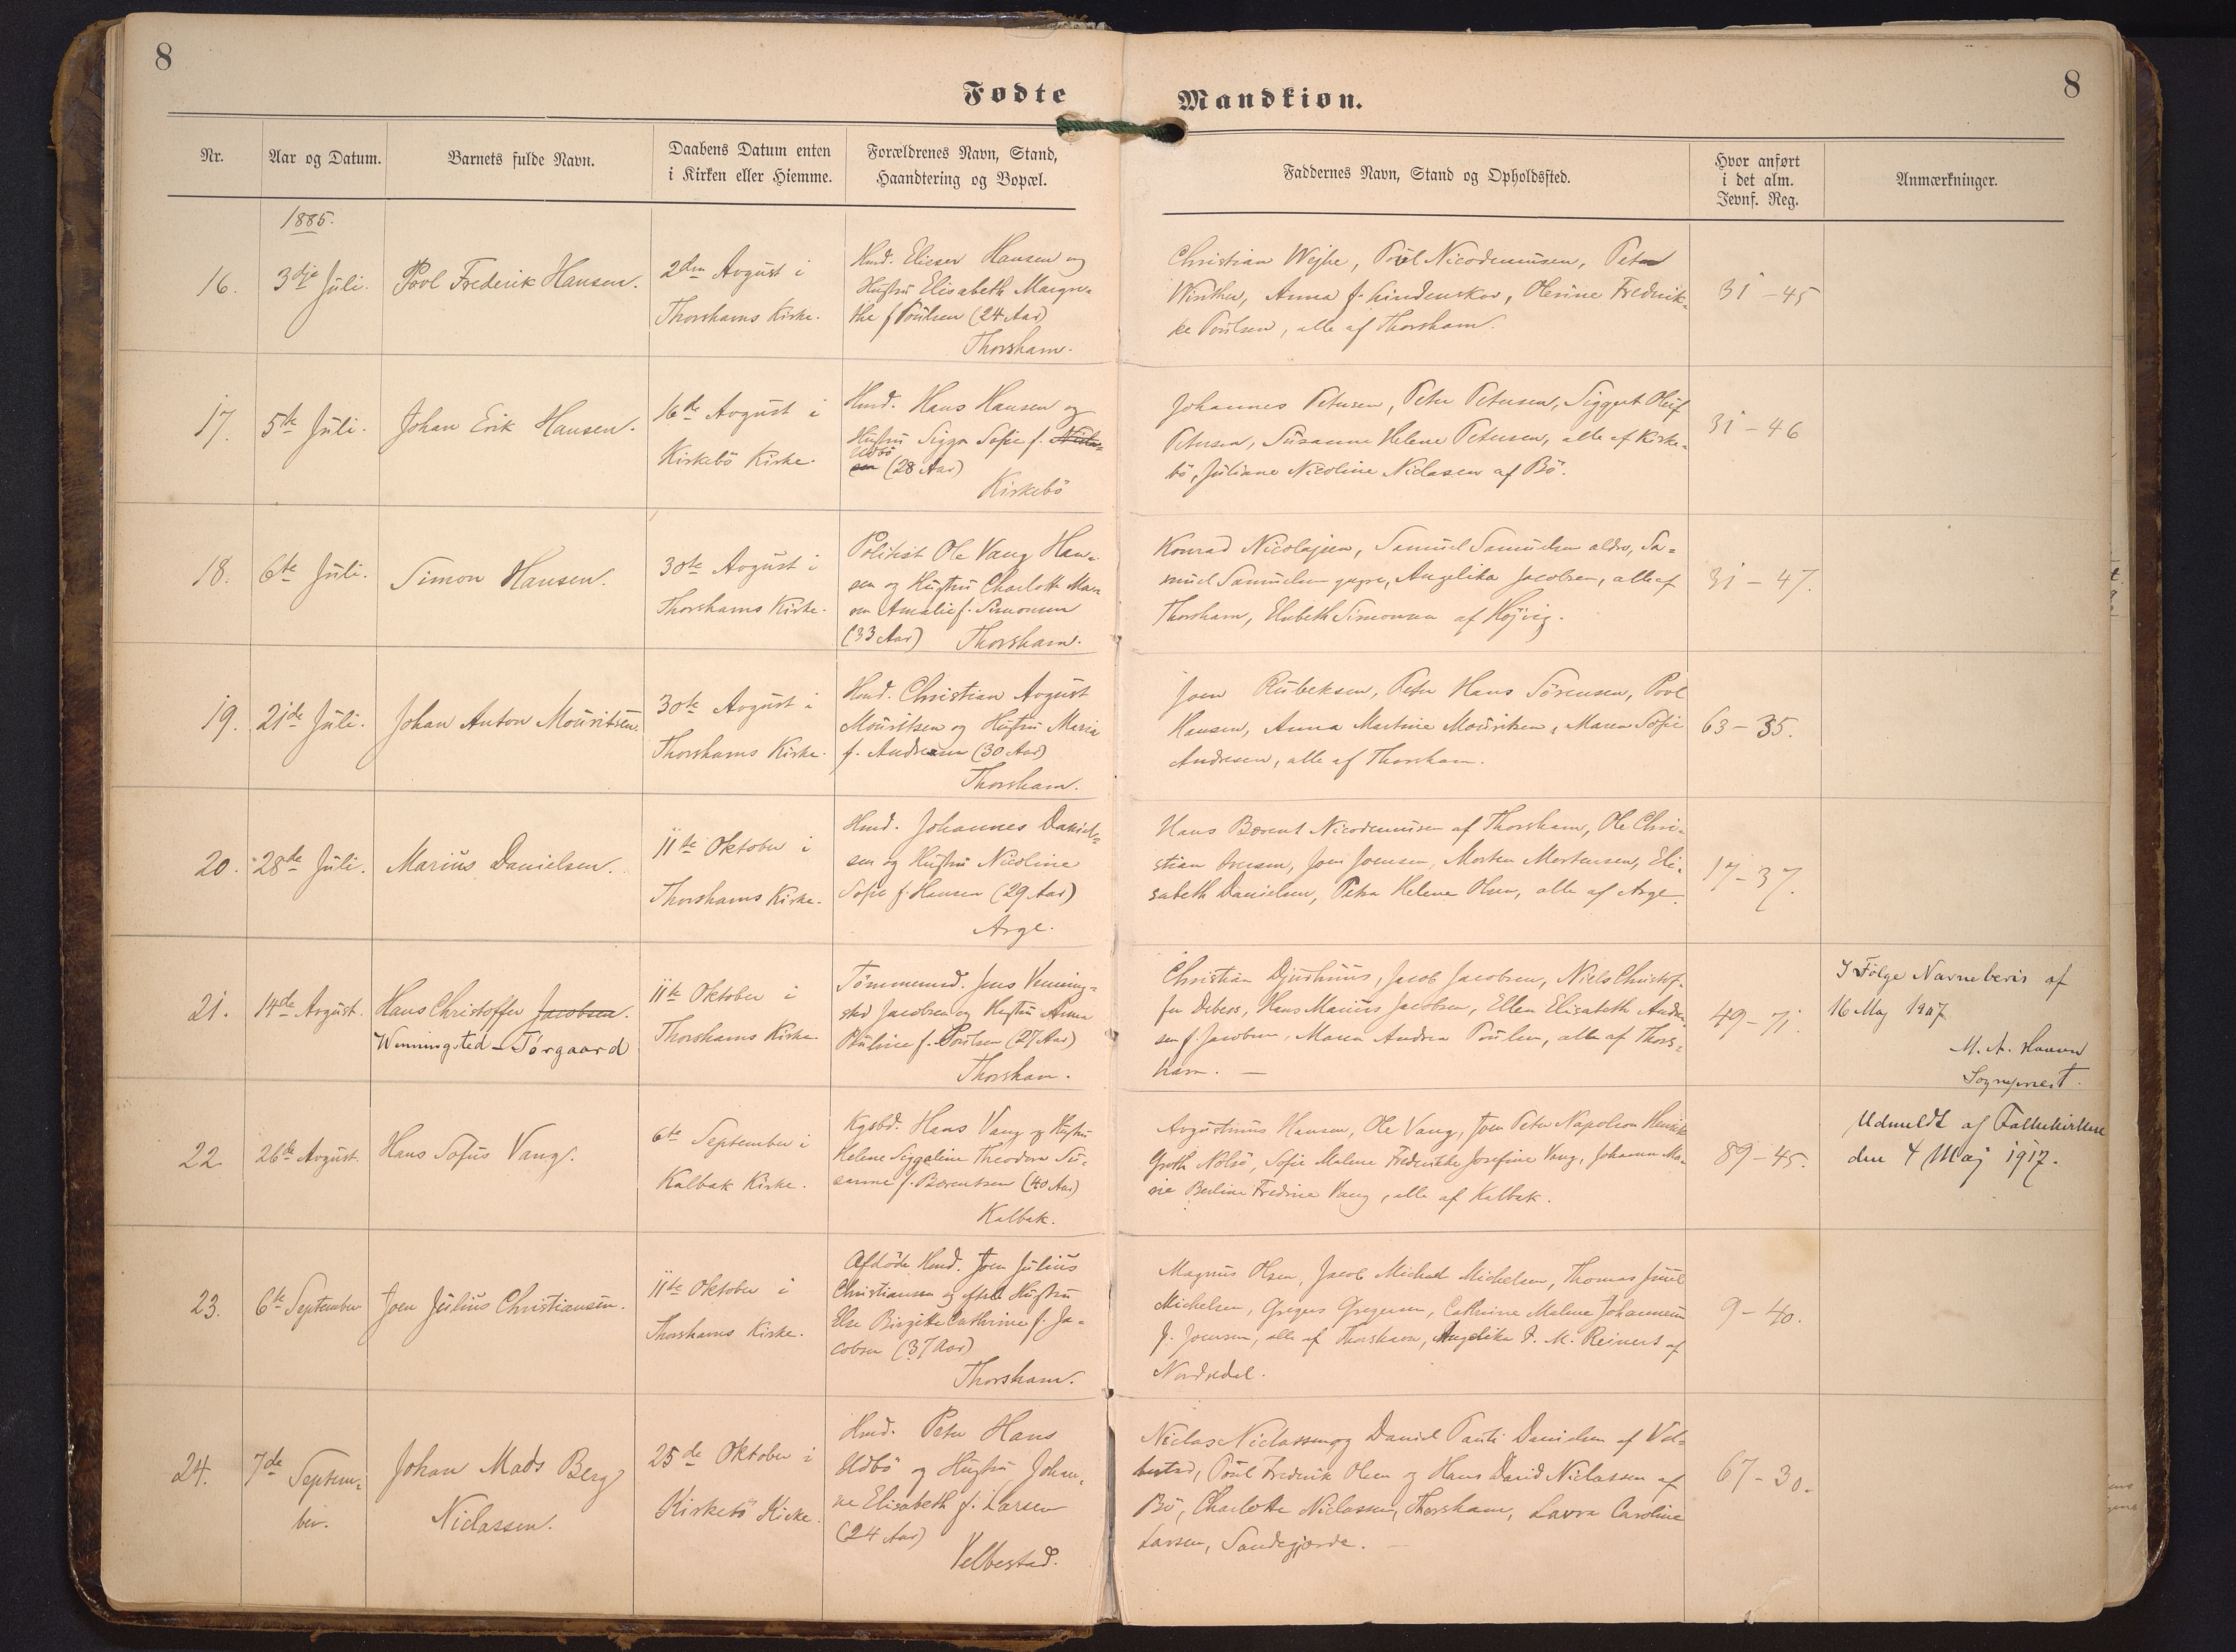 8
8
Fødte
Mandkiøn.
Nr.
Aar og Datum.
Barnets fulde Navn.
Daabens Datum enten
i Kirken eller Hiemme.
Forældrenes Navn, Stand,
Haandtering og Bopæl.
Faddernes Navn, Stand og Opholdssted.
Hvor anført
i det alm.
Jevnf. Reg.
Anmærkninger.
1885.
16.
3dje Juli.
Povl Frederik Hansen.
2den August i
Thorshavns Kirke.
Hmd. Elieser Hansen og
Hustru Elisabeth Margre-
the f. Poulsen (24 Aar)
Thorshavn.
Christian Wejhe, Poul Nicodemussen, Peter
Winther, Anna f. Lindenskov, Olevine Fredrik-
ke Poulsen, alle af Thorshavn.
31 - 45
17.
5te Juli.
Johan Erik Hansen.
16de August i
Kirkebö Kirke.
Hmd. Hans Hansen og
Hustru Sigga Sofie f.
Udbö
(28 Aar)
Kirkebö
Johannes Petersen, Peter Petersen, Siggert Oluf
Petersen, Susanne Helene Petersen, alle af Kirke-
bö, Juliane Nicoline Niclasen af Bö.
31 - 46
18.
6te Juli.
Simon Hansen.
30te August i
Thorshavns Kirke.
Politist Ole Vang Han-
sen og Hustru Charlotte Mar
en Amalie f. Simonsen
(33 Aar) Thorshavn.
Konrad Nicolajsen, Samuel Samuelsen ældre, Sa-
muel Samuelsen yngre, Angelika Jacobsen, alle af
Thorshavn, Elsebeth Simonsen af Höjvig.
31 - 47.
19.
21de Juli.
Johan Anton Mouritsen.
30te August i
Thorshavns Kirke.
Hmd. Christian August
Mouritsen og Hustru Maria
f. Andreasen (30 Aar)
Thorshavn.
Joen Rubeksen, Peter Hans Sörensen, Povl
Hansen, Anna Martine Mouritsen, Maren Sofie
Andresen, alle af Thorshavn.
63 - 35.
20.
28de Juli.
Marius Danielsen.
11te Oktober i
Thorshavns Kirke.
Hmd. Johannes Daniel-
sen og Hustru Nicoline
Sofie f. Hansen (29 Aar)
Arge.
Hans Bærent Nicodemussen af Thorshavn, Ole Chri-
stian Iversen, Joen Joensen, Morten Mortensen, Eli-
sabeth Danielsen, Petra Helene Olsen, alle af Arge.
17 - 37.
21.
14de August.
Hans Christoffer Jacobsen.
Winningsted - Törgaard
11te Oktober i
Thorshavns Kirke.
Tömmermd. Jens Venning-
sted Jacobsen og Hustru Anna
Pouline f. Poulsen (27 Aar)
Thorshavn.
Christian Djurhuus, Jacob Jacobsen, Niels Christof-
fer Debess, Hans Marius Jacobsen, Ellen Elisabeth Andre-
sen f. Jacobsen, Maren Andrea Poulsen, alle af Thors-
havn. —
49 - 71.
I Følge Navnebevis af
16 Maj 1907
M. A. Hansen
Sognepræst.
22
26de August.
Hans Sofus Vang.
6te September i
Kalbak Kirke.
Kgsbd. Hans Vang og Hustru
Helene Siggaline Theodora Su-
sanne f. Berentsen (40 Aar)
Kalbak.
Augustinus Hansen, Ole Vang, Joen Peter Napoleon Henrik
Groth Nolsö, Sofie Malene Fredrikke Josefine Vang, Johanna Ma-
rie Berline Fredrine Vang, alle af Kalbak.
89 - 45.
Udmeldt af Folkekirken
den 4 Maj 1917.
23.
6te September
Joen Julius Christiansen.
11te Oktober i
Thorshavns Kirke.
Afdöde Hmd. Joen Julius
Christiansen og eftl. Hustru
Else Birgitte Cathrine f. Ja-
cobsen (37 Aar)
Thorshavn.
Magnus Olsen, Jacob Michael Michelsen, Thomas Juul
Michelsen, Gregers Gregersen, Cathrine Malene Johannesen
f. Joensen, alle af Thorshavn, Angelika F. M. Reinert af
Nordredal.
9 - 40.
24.
7de Septem-
ber.
Johan Mads Berg
Niclassen.
25de Oktober i
Kirkebö Kirke.
Hmd. Peter Hans
Udbö og Hustru Johan-
ne Elisabeth f. Larsen
(24 Aar)
Velbestad.
Niclas Niclassen og Daniel Pauli Danielsen af Vel-
bestad, Poul Frederik Olsen og Hans David Niclassen af
Bö, Charlotte Niclassen, Thorshavn, Lavra Caroline
Larsen, Sandegjærde. —
67 - 30.